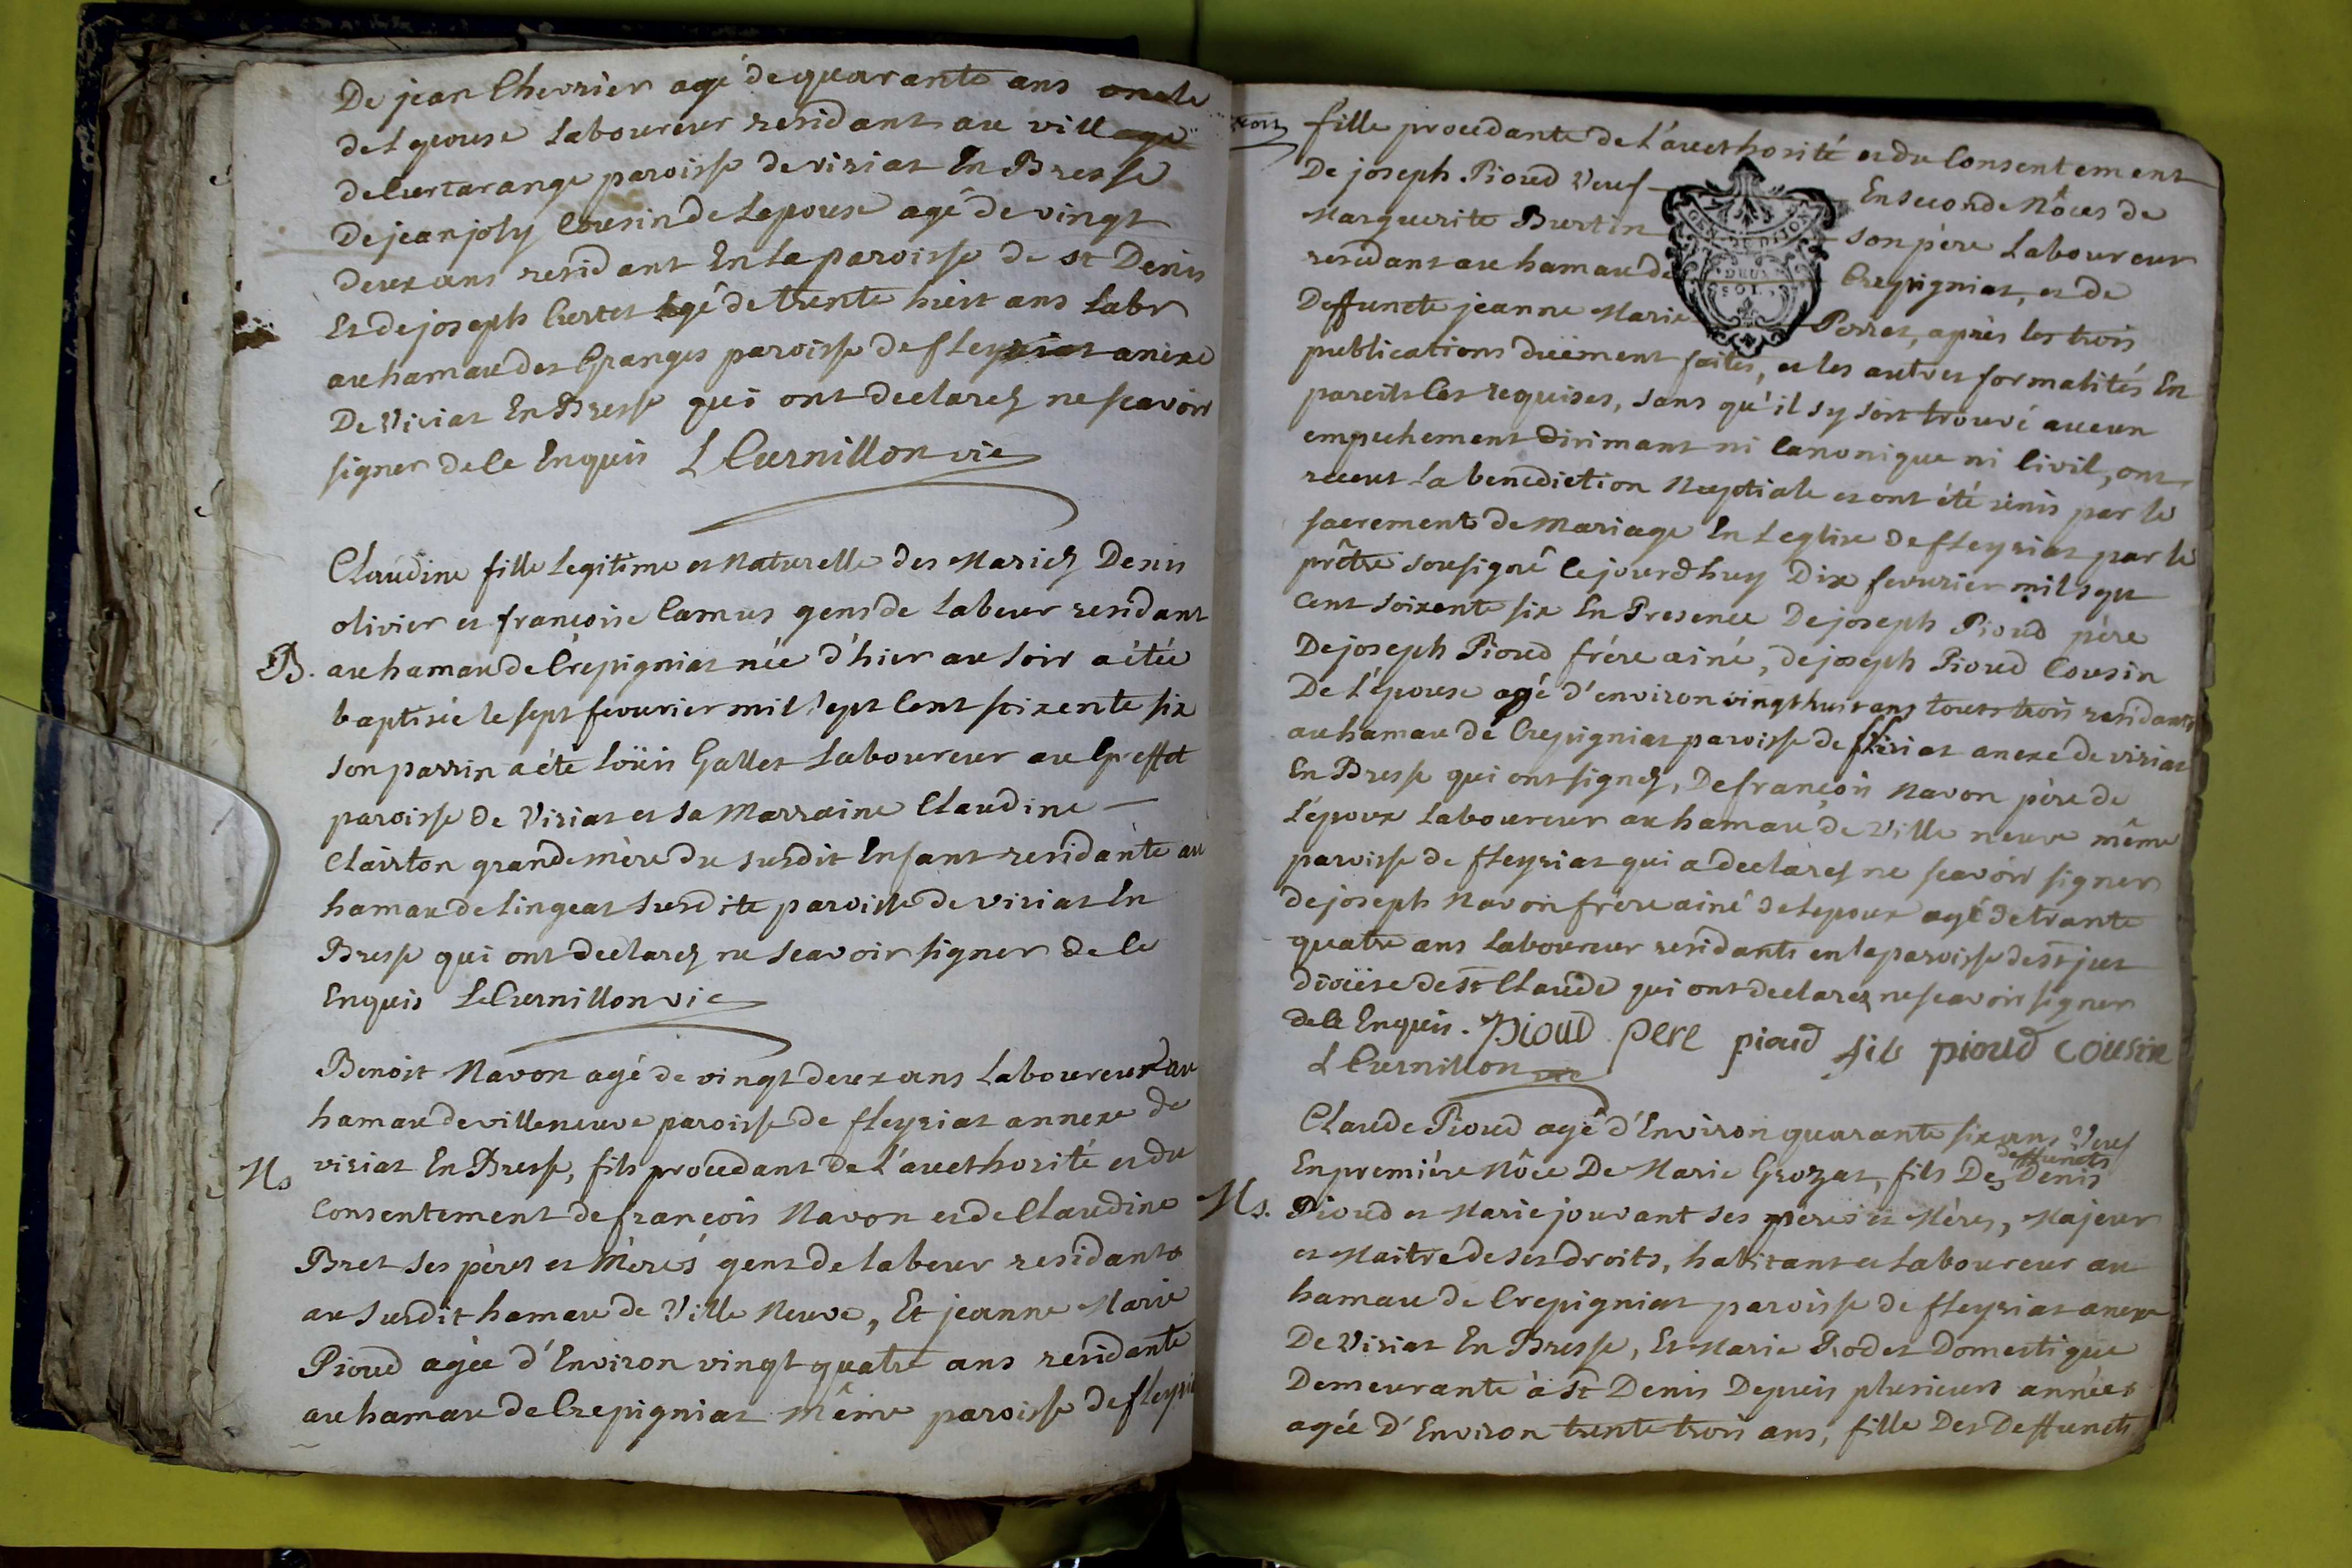 De jean Chevrier agé de quarante ans oncle
de Lepouse Laboureur residant au village
de Curtarange paroisse de viriat En Bresse
De jean joly Cousin de Lepouse agé de vingt
deux ans residant En la paroisse de st Denis
Et de joseph Curtet agé de trente huit ans Labr
au hamau des Granges paroisse de fleyriat anexe
De Viriat En Bresse qui ont declarez ne scavoir
signer de ce Enquis L Curnillon vic
Claudine fille Legitime et Naturelle des Mariez Denis
olivier et françoise Camus gens de Labeur residant
B. au hamau de Crépigniat née d'hier au soir a étée
baptisée le sept fevurier mil sept Cent soixente six
son parrin a été Loüis Gallet Laboureur au Greffet
paroisse de Viriat et sa Marraine Claudine
Clairton grande mère du susdit Enfant residante au
hamau de Lingeat susdite paroisse de viriat En
Bresse qui ont declarez ne scavoir signer de ce
Enquis L Curnillon vic
Benoit Navon agé de vingt deux ans Laboureur au
hamau de villeneuve paroisse de fleyriat annexe de
Ms viriat En Bresse, fils procedant de L'aucthorité et du
Consentement de françois Navon et de Claudine
Bret ses pères et Mères gens de labeur residants
au susdit hamau de Ville Neuve, Et jeanne Marie
Pioud agée d'Environ vingt quatre ans residante
au hamau de Crepigniat même paroisse de fleyri
fille procedante de L'aucthorité et du Consentement
De joseph Pioud Veuf En seconde Nôces de
Marguerite Burtin son père Laboureur
residant au hamau de Crepigniat, et de
Deffuncte jeanne Marie Perret, après les trois
publications düement faites, et les autres formalités En
pareils Cas requises, sans qu'il s'y soit trouvé aucun
empechement dirimant ni Canonique ni Civil, ont
receut La benediction Nuptiale et ont été ünis par le
sacrement de Mariage En Leglise de fleyriat par le
prêtre sousigné Cejourdhuy Dix fevurier mil sept
Cent soixente six En Presence De joseph Pioud père
De joseph Pioud frére ainé, de joseph Pioud Cousin
De L'épouse agé d'environ vingt huit ans tous trois residants
au hamau de Crepigniat paroisse de fliriat anexe de viriat
En Bresse qui ont signez, De françois Navon père de
L'époux Laboureur au hamau de Ville neuve même
paroisse de fleyriat qui a declarez ne scavoir signer
de joseph Navon frére ainé de Lepoux agé de trante
quatre ans Laboureur residants en la paroisse de st jus
dioüese de st Claude qui ont declarez ne scavoir signer
de ce Enquis. pioud pere pioud fils pioud cousin
L Curnillon vic
Claude Pioud agé d'Environ quarante six ans Veuf
deffuncts
En première Nôce De Marie Grozat, fils Des Denis
Ms. Pioud et Marie jouvant ses pères et Mères, Majeur
et Maitre de ses droits, habitant et Laboureur au
hamau de Crepigniat paroisse de fleyriat anexe
De Viriat En Bresse, Et Marie Rodet Domestique
Demeurante à st Denis Depuis plusieurs années
agée D'Environ trente trois ans, fille Des Deffuncts
GEN. DE DIJON
DEUX
SOLS